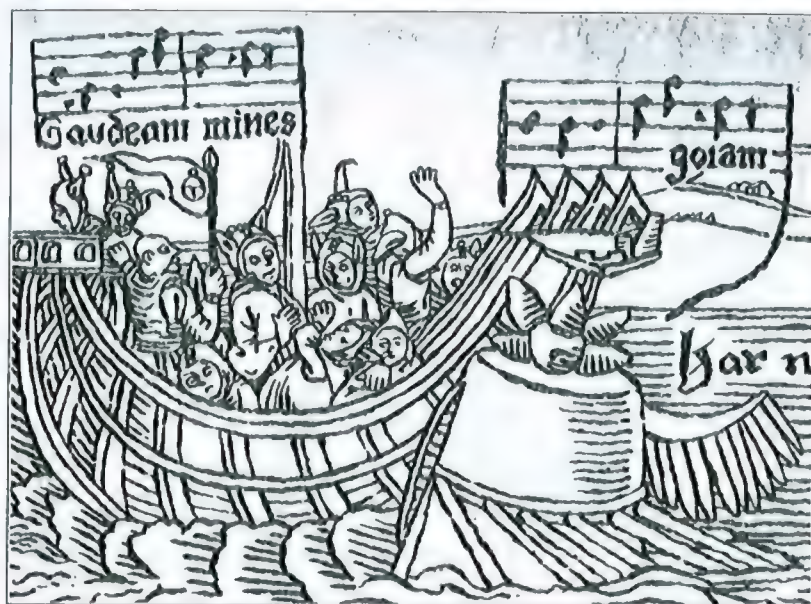 Gaudeam mines
goiam
Har n